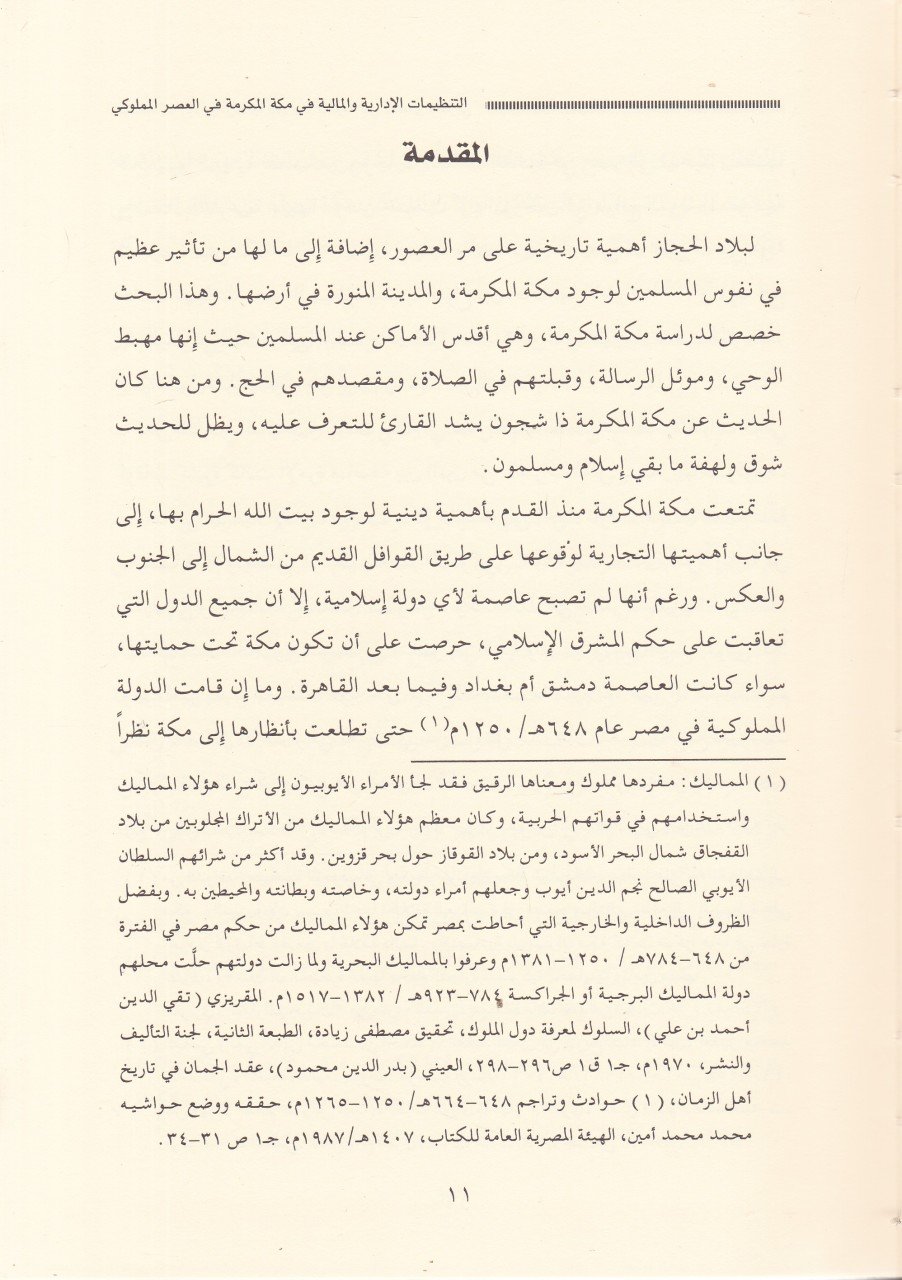 التنظيمات الإدارية والمالية في مكة المكرمة في العصر المملوكي
المقدمة
لبلاد الحجاز أهمية تاريخية على مر العصور، إضافة إلى ما لها من تأثير عظيم
في نفوس المسلمين لوجود مكة المكرمة، والمدينة المنورة في أرضها. وهذا البحث
خصص لدراسة مكة المكرمة، وهي أقدس الأماكن عند المسلمين حيث إنها مهبط
الوحي، وموئل الرسالة، وقبلتهم في الصلاة، ومقصدهم في الحج. ومن هنا كان
الحديث عن مكة المكرمة ذا شجون يشد القارئ للتعرف عليه، ويظل للحديث
شوق ولهفة ما بقي إسلام ومسلمون.
تمتعت مكة المكرمة منذ القدم بأهمية دينية لوجود بيت الله الحرام بها، إلى
جانب أهميتها التجارية لوقوعها على طريق القوافل القديم من الشمال إلى الجنوب
والعكس. ورغم أنها لم تصبح عاصمة لأي دولة إسلامية، إلا أن جميع الدول التي
تعاقبت على حكم المشرق الإسلامي، حرصت على أن تكون مكة تحت حمايتها،
سواء كانت العاصمة دمشق أم بغداد وفيما بعد القاهرة. وما إن قامت الدولة
المملوكية في مصر عام ٦٤٨هـ/١٢٥٠م(١) حتى تطلعت بأنظارها إلى مكة نظراً
(١) المماليك: مفردها مملوك ومعناها الرقيق فقد لجأ الأمراء الأيوبيون إلى شراء هؤلاء المماليك
واستخدامهم في قواتهم الحربية، وكان معظم هؤلاء المماليك من الأتراك المجلوبين من بلاد
القفجاق شمال البحر الأسود، ومن بلاد القوقاز حول بحر قزوين. وقد أكثر من شرائهم السلطان
الأيوبي الصالح نجم الدين أيوب وجعلهم أمراء دولته، وخاصته وبطانته والمحيطين به. وبفضل
الظروف الداخلية والخارجية التي أحاطت بمصر تمكن هؤلاء المماليك من حكم مصر في الفترة
من ٦٤٨-٧٨٤هـ / ١٢٥٠-١٣٨١م وعرفوا بالمماليك البحرية ولما زالت دولتهم حلَّت محلهم
دولة المماليك البرجية أو الجراكسة ٧٨٤-٩٢٣هـ / ١٣٨٢-١٥١٧م. المقريزي (تقي الدين
أحمد بن علي)، السلوك لمعرفة دول الملوك، تحقيق مصطفى زيادة، الطبعة الثانية، لجنة التأليف
والنشر، ١٩٧٠م، جـ١ ق١ ص٢٩٦-٢٩٨، العيني (بدر الدين محمود)، عقد الجمان في تاريخ
أهل الزمان، (١) حوادث وتراجم ٦٤٨-٦٦٤هـ/١٢٥٠-١٢٦٥م، حققه ووضع حواشيه
محمد محمد أمين، الهيئة المصرية العامة للكتاب، ١٤٠٧هـ/١٩٨٧م، جـ١ ص ٣١-٣٤.
١١